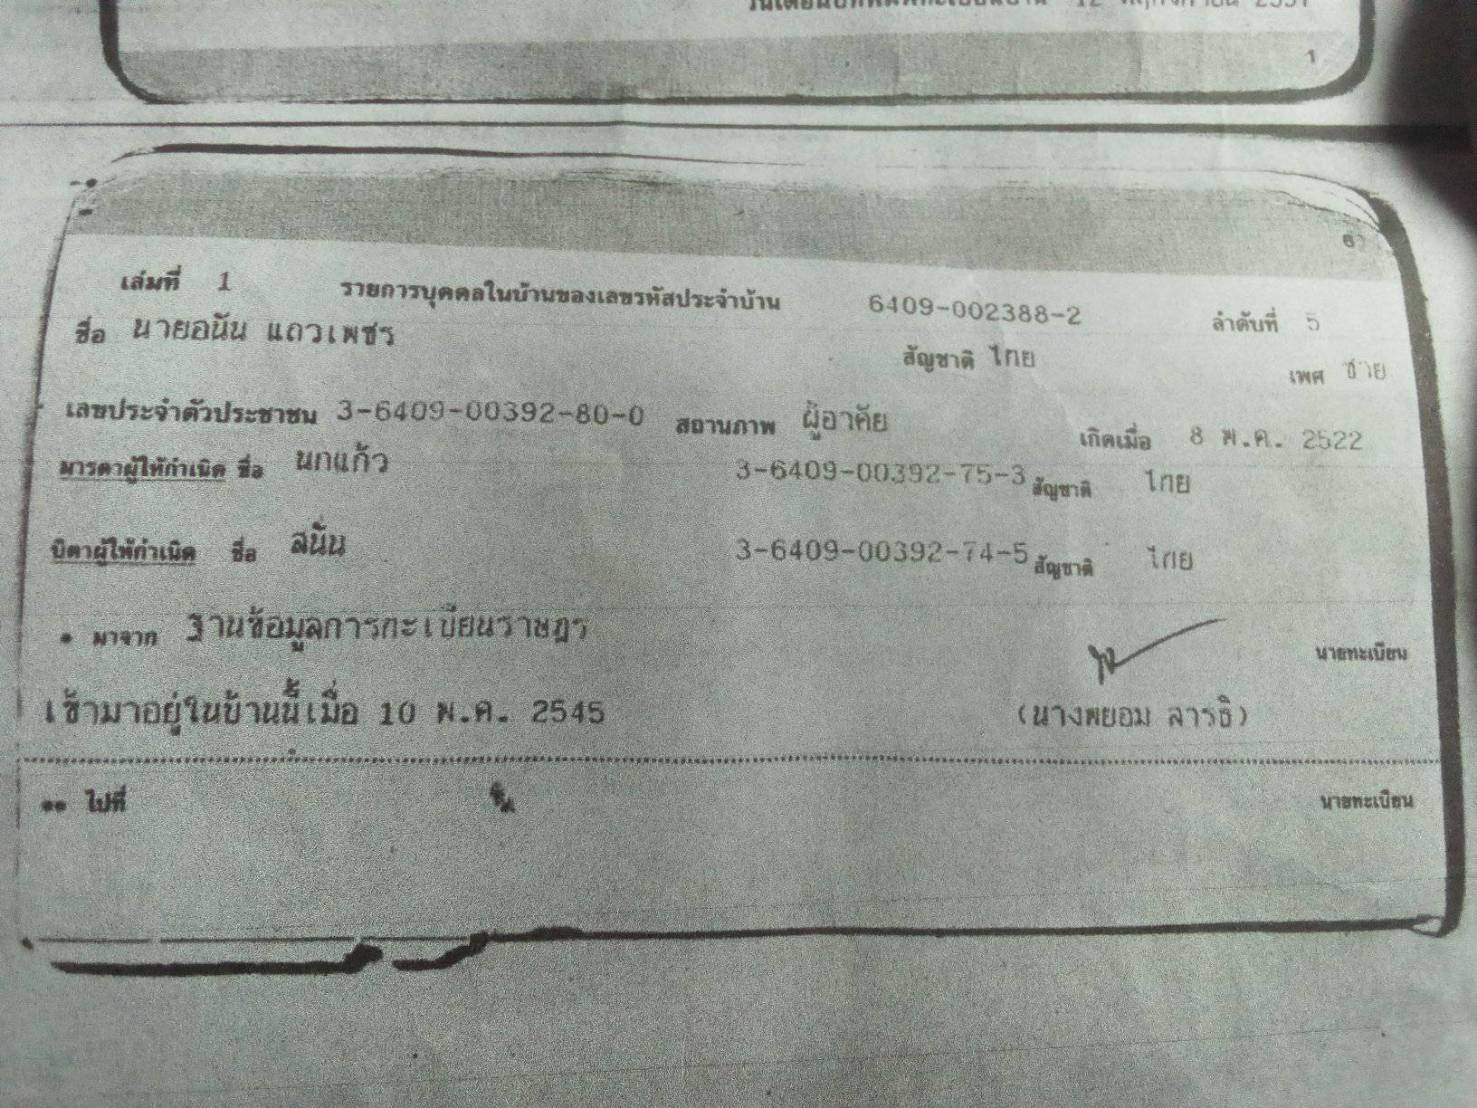 1
6
เล่มที่ 1 รายการบุคคลในบ้านของเลขรหัสประจำบ้าน 6409-002388-2 ลำดับที่ 5
ชื่อ นายอนัน แถวเพชร สัญชาติ ไทย เพศ ชาย
เลขประจำตัวประชาชน 3-6409-00392-80-0 สถานภาพ ผู้อาศัย เกิดเมื่อ 8 พ.ค. 2522
มารดาผู้ให้กำเนิด ชื่อ นกแก้ว 3-6409-00392-75-3 สัญชาติ ไทย
บิดาผู้ให้กำเนิด ชื่อ สนั่น 3-6409-00392-74-5 สัญชาติ ไทย
* มาจาก ฐานข้อมูลการทะเบียนราษฎร นายทะเบียน
เข้ามาอยู่ในบ้านนี้เมื่อ 10 พ.ค. 2545 (นางพยอม สารธิ)
** ไปที่ นายทะเบียน